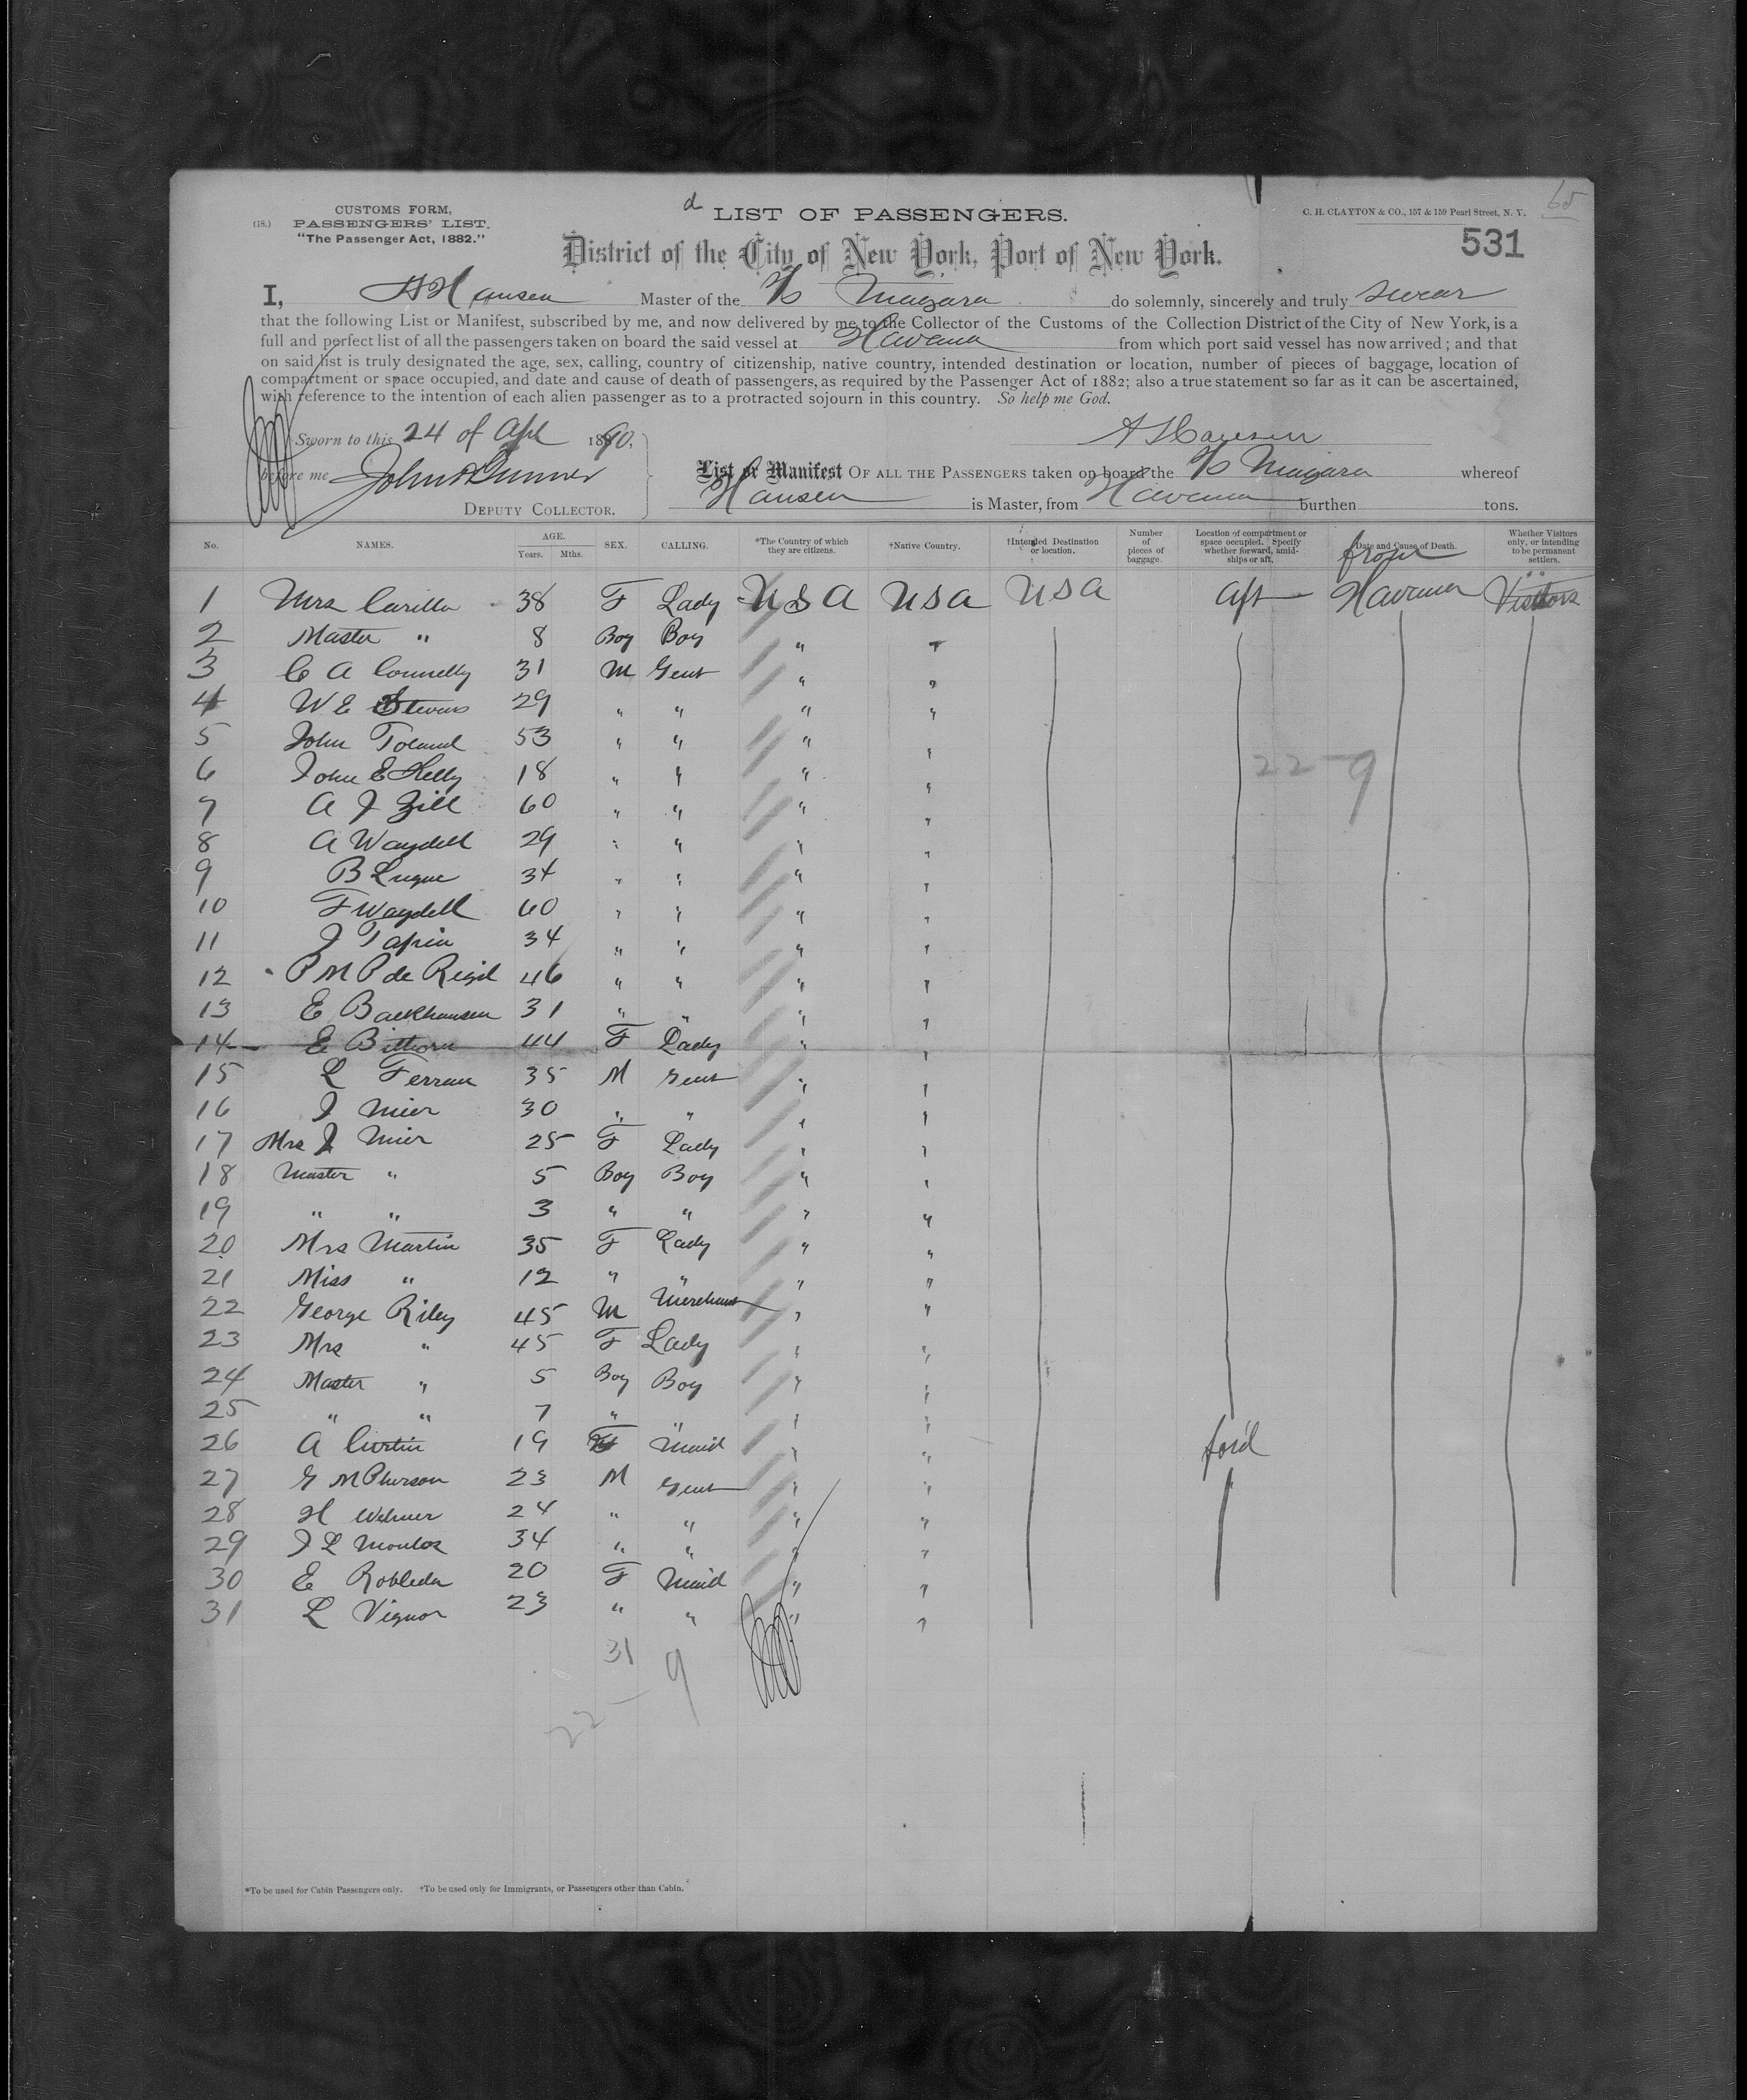 65
(18.) CUSTOMS FORM,
PASSENGERS' LIST.
"The Passenger Act, 1882."
d LIST OF PASSENGERS.
C. H. CLAYTON & CO., 157 & 159 Pearl Street, N. Y.
531
District of the City of New York, Port of New York.
I, A Hansen Master of the S/S Niagara do solemnly, sincerely and truly swear
that the following List or Manifest, subscribed by me, and now delivered by me to the Collector of the Customs of the Collection District of the City of New York, is a
full and perfect list of all the passengers taken on board the said vessel at Havana from which port said vessel has now arrived; and that
on said list is truly designated the age, sex, calling, country of citizenship, native country, intended destination or location, number of pieces of baggage, location of
compartment or space occupied, and date and cause of death of passengers, as required by the Passenger Act of 1882; also a true statement so far as it can be ascertained,
with reference to the intention of each alien passenger as to a protracted sojourn in this country. So help me God.
Sworn to this 24 of Apl 1890,
A Hansen
before me John Gunner
List or Manifest OF ALL THE PASSENGERS taken on board the S/S Niagara whereof
Hansen is Master, from Havana burthen tons.
DEPUTY COLLECTOR.
No. NAMES. AGE. Years. Mths. SEX. CALLING. *The Country of which they are citizens. †Native Country. †Intended Destination or location. Number of pieces of baggage. Location of compartment or space occupied. Specify whether forward, amidships or aft. Date and Cause of Death. from Whether Visitors only, or intending to be permanent settlers.
1 Mrs Carilla 38 F Lady USA USA USA aft Havana Visitors
2 Master " 8 Boy Boy " "
3 C A Connelly 31 M Gent " "
4 W E Stevens 29 " " " "
5 John Toland 53 " " " "
6 John E Kelly 18 " " " "
22-9
7 A J Zill 60 " " " "
8 A Waydell 29 " " " "
9 B Luque 34 " " " "
10 F Waydell 60 " " " "
11 J Tapin 34 " " " "
12 P M P de Rigil 46 " " " "
13 E Backhausen 31 " " " "
14 E Bithorn 44 F Lady " "
15 L Ferran 35 M Gent " "
16 J Mier 30 " " " "
17 Mrs J Mier 25 F Lady " "
18 Master " 5 Boy Boy " "
19 " " 3 " " " "
20 Mrs Martin 35 F Lady " "
21 Miss " 12 " " " "
22 George Riley 45 M Merchant " "
23 Mrs " 45 F Lady " "
24 Master " 5 Boy Boy " "
25 " " 7 " " " "
26 A Curtin 19 F Maid " " ford
27 G McPherson 23 M Gent " "
28 H Wehner 24 " " " "
29 J L Moulos 34 " " " "
30 E Robleda 20 F Maid " "
31 L Vignor 23 " " " "
31 9
22 -
*To be used for Cabin Passengers only. †To be used only for Immigrants, or Passengers other than Cabin.